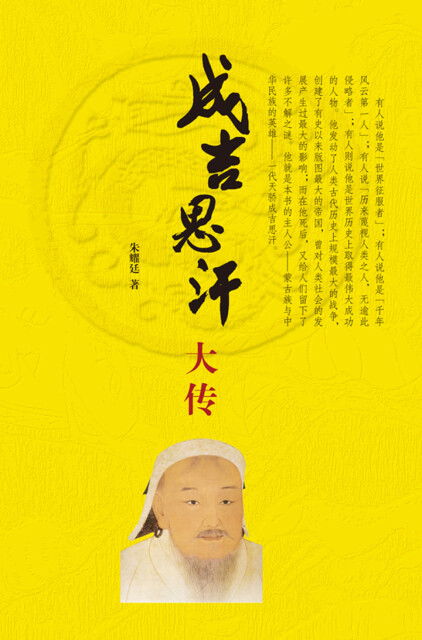 有人说他是「世界征服者」；有人说他是「千年
风云第一人」；有人说「历来蔑视人类之人，无逾此
侵略者」；有人则说他是世界历史上取得最伟大成功
的人物。他发动了人类古代历史上规模最大的战争，
创建了有史以来版图最大的帝国，曾对人类社会的发
展产生过最大的影响；而在他死后，又给人们留下了
许多不解之谜。他就是本书的主人公——蒙古族与中
华民族的英雄——一代天骄成吉思汗。
成吉思汗
大传
朱耀廷 著